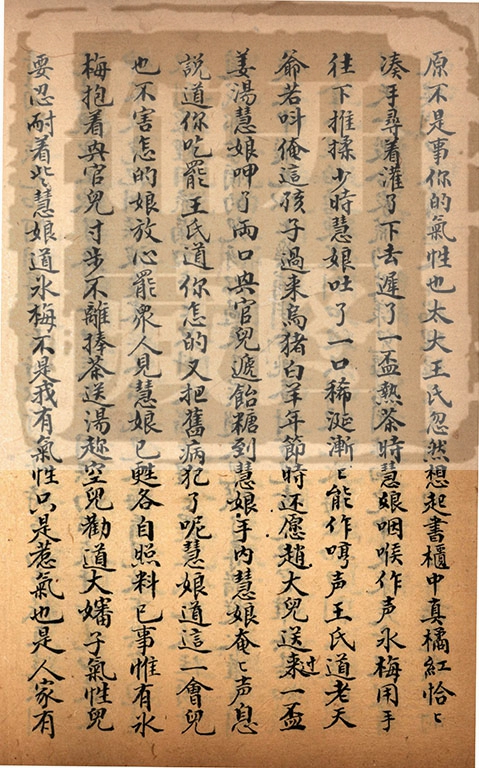 原不是事你的氣性也太大王氏忽然想起書櫃中真橘紅恰〻
湊手尋着灌了下去遲了一盃熱茶時慧娘咽喉作声氷梅用手
往下推揉少時慧娘吐了一口稀涎漸〻能作呵声王氏道老天
爺若呌俺這孩子過来烏猪白羊年節時还愿趙大兒送過来一盃
姜湯慧娘呷了両口與官兒遞飴糖到慧娘手内慧娘奄〻声息
説道你吃罷王氏道你怎的又把舊病犯了呢慧娘道這一會兒
也不害怎的娘放心罷衆人見慧娘已甦各自照料已事惟有氷
梅抱着與官兒寸步不離捧茶送湯趂空兒勸道大嬸子氣性兒
要忍耐着些慧娘道氷梅不是我有氣性只是惹氣也是人家有